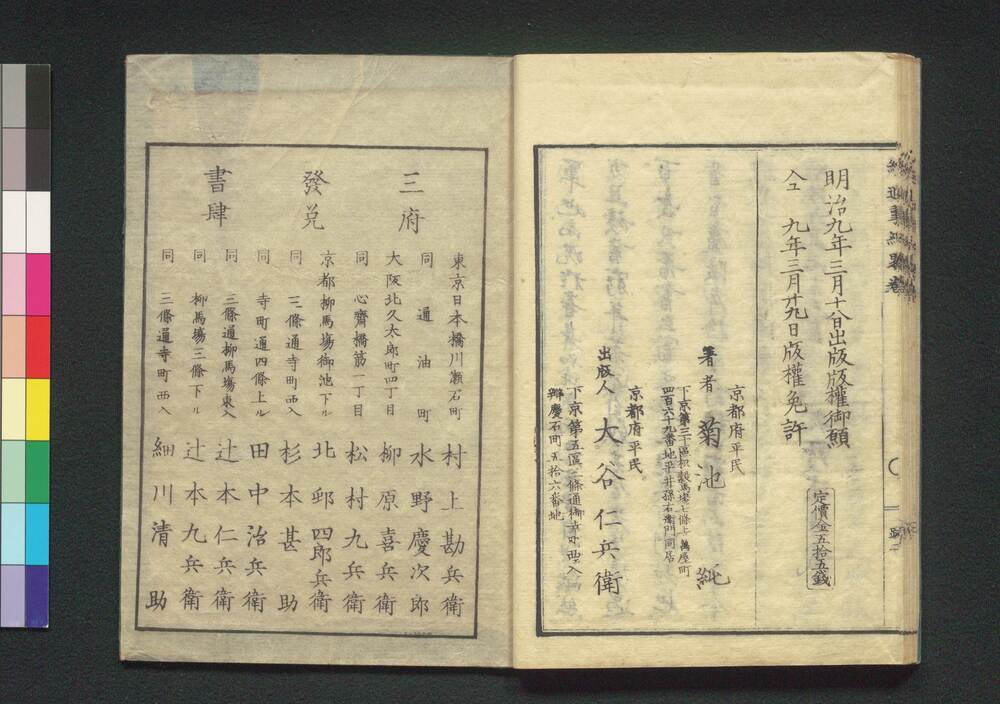 明治九年三月十八日出版版權御願
仝 九年三月廿九日版權免許
定價金五拾五錢
京都府平民
著者 菊池 純
下京第三十區
四百六十九番地平井孫右衛門同居
京都府平民
出版人 大谷仁兵衛
下京第五區三條通御幸町西入
辨慶石町五拾六番地
三府
發兌
書肆
東京日本橋川瀬石町 村上勘兵衛
同 通油町 水野慶次郎
大阪北久太郎町四丁目 柳原喜兵衛
同 心齋橋筋一丁目 松村九兵衛
京都柳馬塲御池下ル 北邨四郎兵衛
同 三條通寺町西入 杉本甚助
同 寺町通四條上ル 田中治兵衛
同 三條通柳馬塲東入 辻本仁兵衛
同 柳馬塲三條下ル 辻本九兵衛
同 三條通寺町西入 細川清助